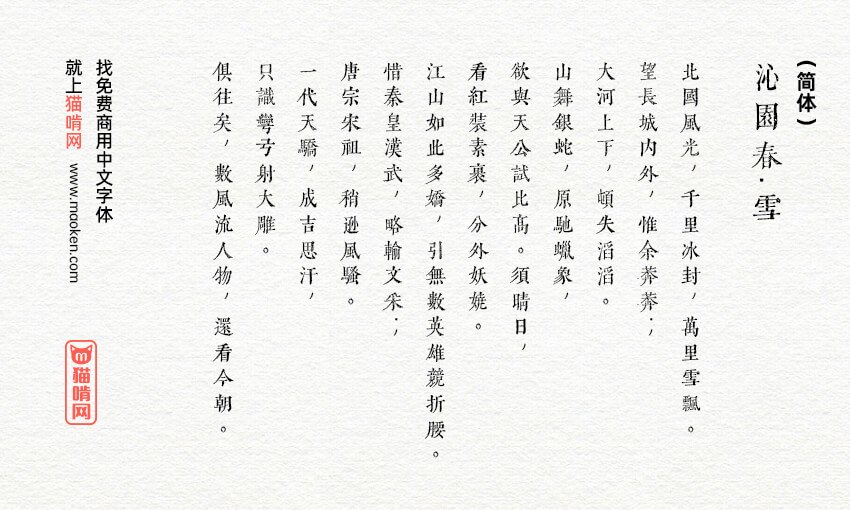 (简体)
沁園春·雪
北國風光，千里冰封，萬里雪飄。
望長城内外，惟余莽莽；
大河上下，頓失滔滔。
山舞銀蛇，原馳蠟象，
欲與天公試比高。須晴日，
看紅裝素裹，分外妖嬈。
江山如此多嬌，引無數英雄競折腰。
惜秦皇漢武，略輸文采；
唐宗宋祖，稍遜風騷。
一代天驕，成吉思汗，
只識彎弓射大雕。
俱往矣，數風流人物，還看今朝。
找免费商用中文字体
就上猫啃网 www.maoken.com
猫啃网